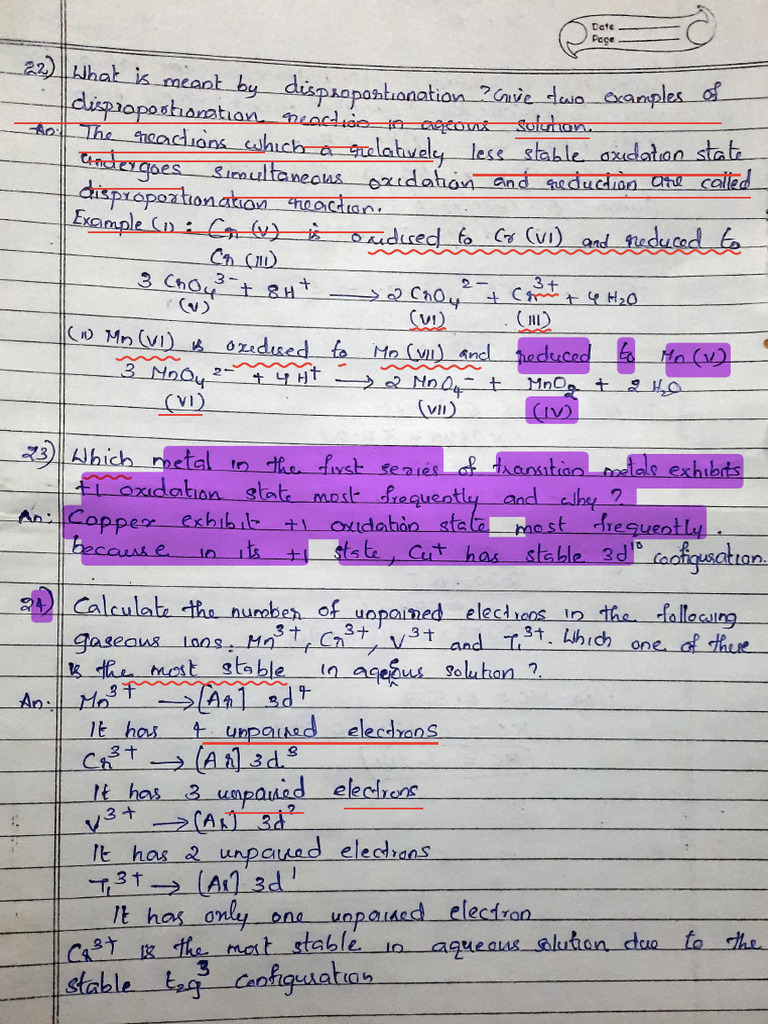 Date
Page
22) What is meant by disproportionation? Give two examples of
disproportionation reaction in ageous solution.
An: The reactions which a relatively less stable oxidation state
undergoes simultaneous oxidation and reduction are called
disproportionation reaction.
Example (i) : Cr (V) is oxidised to Cr (VI) and reduced to
Cr (III)
3 CrO₄³⁻ + 8H⁺ ⟶ 2 CrO₄²⁻ + Cr³⁺ + 4 H₂O
(V) (VI) (III)
(ii) Mn (VI) is oxidised to Mn (VII) and reduced to Mn (V)
3 MnO₄²⁻ + 4H⁺ ⟶ 2 MnO₄⁻ + MnO₂ + 2 H₂O
(VI) (VII) (IV)
23) Which metal in the first series of transition metals exhibits
+1 oxidation state most frequently and why?
An: Copper exhibit +1 oxidation state most frequently.
because in its +1 state, Cu⁺ has stable 3d¹⁰ configuration.
24) Calculate the number of unpaired electrons in the following
gaseous ions: Mn³⁺, Cr³⁺, V³⁺ and Ti³⁺. Which one of these
is the most stable in ageous solution?
An: Mn³⁺ ⟶ [Ar] 3d⁴
It has 4 unpaired electrons
Cr³⁺ ⟶ [Ar] 3d³
It has 3 unpaired electrons
V³⁺ ⟶ [Ar] 3d²
It has 2 unpaired electrons
Ti³⁺ ⟶ [Ar] 3d¹
It has only one unpaired electron
Cr³⁺ is the most stable in aqueous solution due to the
stable t₂g³ configuration